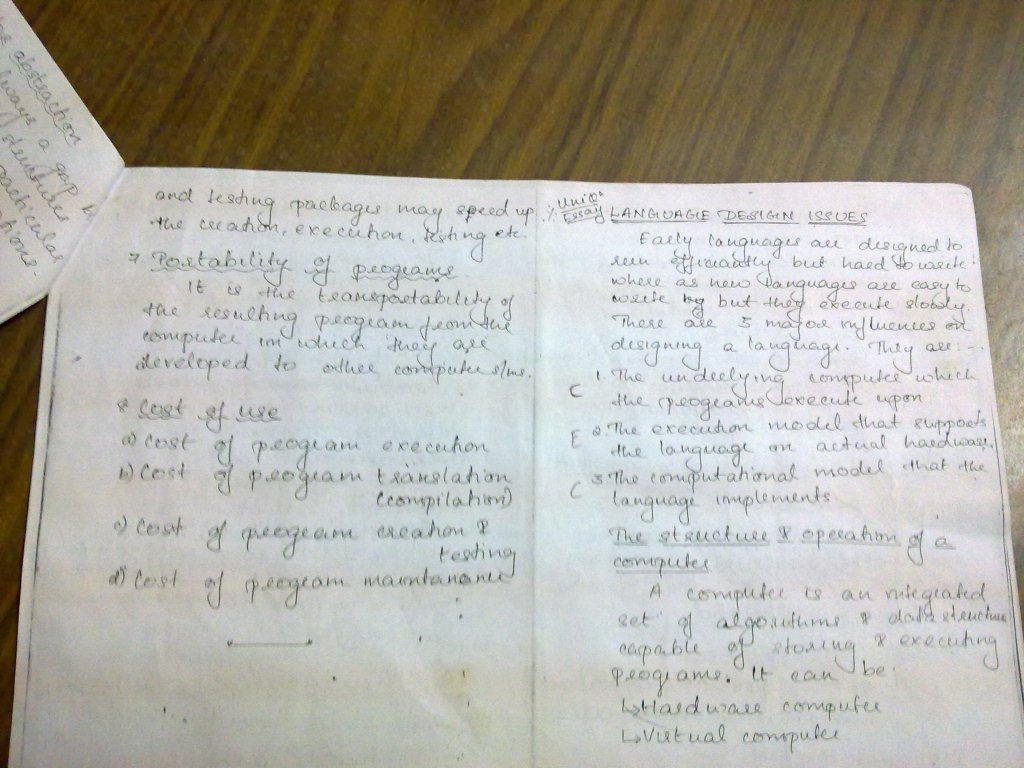 abstraction
always a gap
structures
particular
and testing packages may speed up
the creation, execution, testing etc.
7 Portability of programs
It is the transportability of
the resulting program from the
computer in which they are
developed to other computer s/ms.
8 Cost of use
a) Cost of program execution
b) Cost of program translation
(compilation)
c) Cost of program creation &
testing
d) Cost of program maintanance
Essay LANGUAGE DESIGN ISSUES
Early languages are designed to
run efficiently but hard to write
where as new languages are easy to
write by but they execute slowly.
There are 3 major influences on
designing a language. They are:-
1. The underlying computer which
C the programs execute upon
E 2. The execution model that supports
the language on actual hardware
C 3. The computational model that the
language implements
The structure & operation of a
computer
A computer is an integrated
set of algorithms & data structure
capable of storing & executing
programs. It can be:
↳Hardware computer
↳Virtual computer